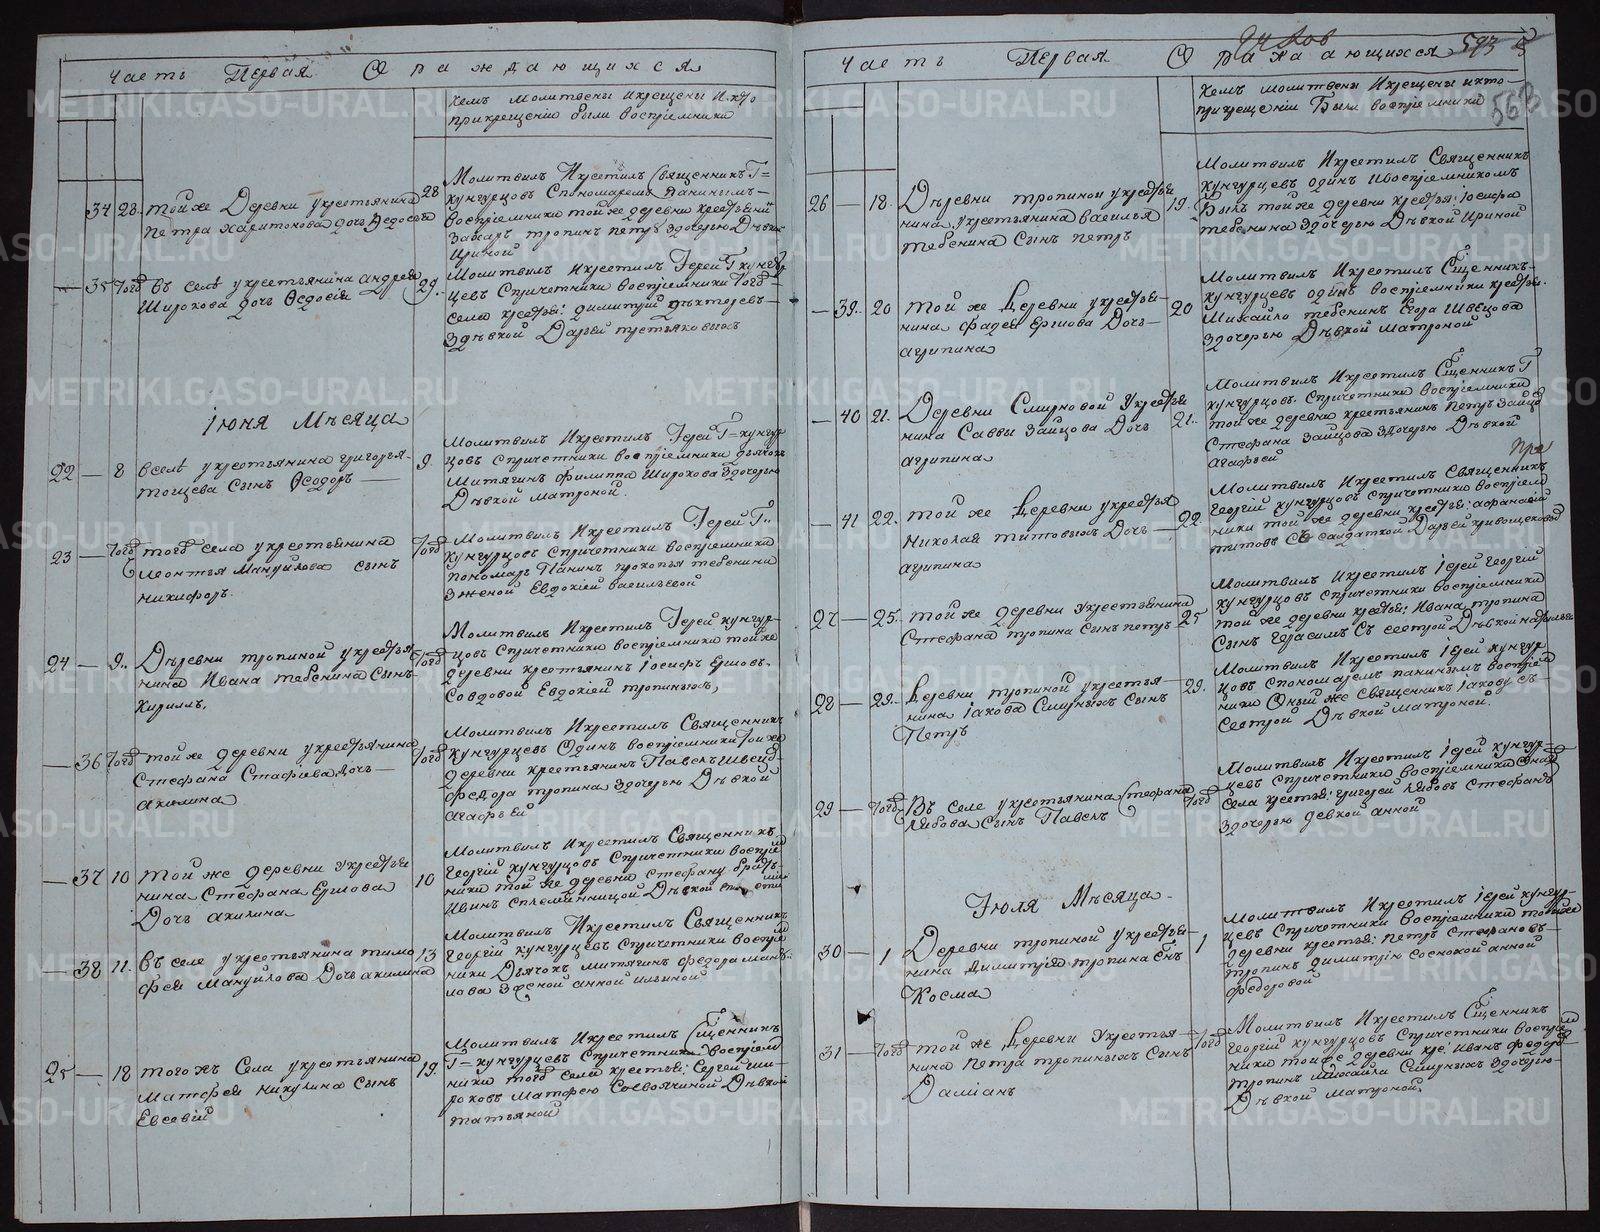 Часть Первая О раждающихся
Кемъ молитвены Икрещены Икто
прикрещеніи были воспріемники
34 28 тойже Деревни укрестьянина
Петра Харитонова дочь Ѳедосья
28 Молитвилъ Икрестилъ Священникъ Г=
кунгурцовъ Спономаремъ Панинымъ
воспріемники тойже деревни
Захаръ тропинъ петръ здочерью Дѣвкой
Ириной
35 Тогож въ селѣ укрестьянина андрея
Широкова дочь Ѳедосія
29 Молитвилъ Икрестилъ Іерей Г кунгур
цевъ Спричетники воспріемники Тогож
села крестья: димитрій дѣхтеревъ
здѣвкой Дарьей пустыковыхъ
Іюня Мѣсяца
22 — 8 вселѣ укрестьянина григорья
тощева сынъ Ѳеодоръ
9 Молитвилъ Икрестилъ Іерей Г=кунгур
цовъ спричетники воспріемники дьячокъ
Митягинъ филиппа Широкова здочерью
Дѣвкой матроной.
23 — Тогож тогож села укрестьянина
Леонтья Мануилова сынъ
Никифоръ
Тогож Молитвилъ Икрестилъ Іерей Г..
кунгурцовъ спричетники воспріемники
пономарь Панинъ прокопья тебенина
Зженой Евдокіей васильевой
24 — 9. Деревни тропиной укрестья
нина Ивана тебенина Сынъ
Кириллъ,
Тогож Молитвилъ Икрестилъ Іерей кунгур
цовъ спричетники воспріемники тойже
деревни крестьянинъ іосифъ Ершовъ
Совдовой Евдокіей тропиныхъ,
— 36 Тогож тойже деревни укрестьянина
Стефана Стафѣева Дочь
акилина
Тогож Молитвилъ Икрестилъ Священникъ
Кунгурцевъ Одинъ воспріемники Тойже
деревни крестьянинъ Павелъ
федора тропина здочерью Дѣвкой
агафьей
— 37 10 той же деревни укрестья
нина Стефана Ершова
Дочь акилина
10 Молитвилъ Икрестилъ Священникъ
Георгій кунгурцовъ Спричетники воспріем
ники той же деревни стефану
сплемянницой Дѣвкой
— 38 11. Въ селе укрестьянина тимо
фея Мануйлова Дочь акилина
13 Молитвилъ Икрестилъ Священникъ
Георгій кунгурцевъ Спричетники воспріем
ники Дьячокъ митягинъ федора мануй
лова Зженой анной ильиной
25 — 18 тогожъ Села укрестьянина
матфея никулина сынъ
Евсевій
19. Молитвилъ Икрестилъ Сщенникъ
Г=кунгурцевъ Спричетники Воспріем
ники тогож села крестья: Сергей ши
роковъ матфею Дѣвкой
татьяной
Часть Первая О раждающихся 593
563
Кемъ молитвены Икрещены икто
прикрещеніи Были воспріемники
26 — 18. Деревни тропиной укрестья
нина, укрестьянина василья
тебенина Сынъ петръ
19. Молитвилъ Икрестилъ Священникъ
кунгурцевъ одинъ Ивоспріемникомъ
Былъ той же деревни крестья: іосифа
тебенина здочерью Дѣвкой Ириной
— 39. 20 той же Деревни укрестья
нина фадея Ершова Дочь
агрипина
20 Молитвилъ Икрестилъ Сщенникъ
кунгурцевъ одинъ воспріемники крестья.
Михайло тебенинъ Егора Швецова
здочерью Дѣвкой матроной
— 40 21. Деревни Смирновой укрестья
нина Саввы Зайцова Дочь
агрипина
21. Молитвилъ Икрестилъ Сщенникъ Г
кунгурцовъ. Спричетники воспріемники
той же деревни крестьянинъ Петръ зайцов
Стефана зайцова здочерью Дѣвкой
агафьей
— 41 22. той же Деревни укрестья
Николая титовыхъ Дочь
агрипина
22. Молитвилъ Икрестилъ Священникъ
Георгій кунгурцовъ Спричетники воспріем
ники той же деревни крестья: афанасій
титовъ Съ салдаткой Дарьей кривощековой
27 — 25. той же деревни укрестьянина
Стефана тропина сынъ петръ
25 Молитвилъ Икрестилъ іерей Георгій
кунгурцовъ Спричетники воспріемники
той же деревни крестья: Ивана тропина
Сынъ Герасимъ Съ сестрой Дѣвкой натальей
28 — 29. Деревни тропиной укрестья
нина іакова Смирныхъ сынъ
Петръ
29. Молитвилъ Икрестилъ іерей кунгур
цовъ Спономаремъ панинымъ воспріем
ники Оный же Священникъ іакову съ
Сестрой Дѣвкой матроной.
29 — Тогож Въ селе укрестьянина Стефана
Рябова сынъ Павелъ
Тогож Молитвилъ Икрестилъ іерей кунгур
цевъ спричетники воспріемники Онаго
села крестья: григорей Рябовъ Стефана
здочерью девкой анной
Іюля Мѣсяца
30 — 1 Деревни тропиной укрестья
нина Димитрія тропина Снъ
Косма
1 Молитвилъ Икрестилъ іерей кунгур
цевъ Спричетники воспріемники тойже
деревни крестья: петръ Стефановъ
тропинъ димитрію соснохой анной
федоровой
31 — Тогож той же Деревни укрестья
нина Петра тропиныхъ Сынъ
Даміанъ
Тогож Молитвилъ Икрестилъ Сщенникъ
Георгій кунгурцовъ Спричетники воспріем
ники тойже деревни кре: Иванъ федоров
тропинъ михайла Смирныхъ здочерью
Дѣвкой матроной